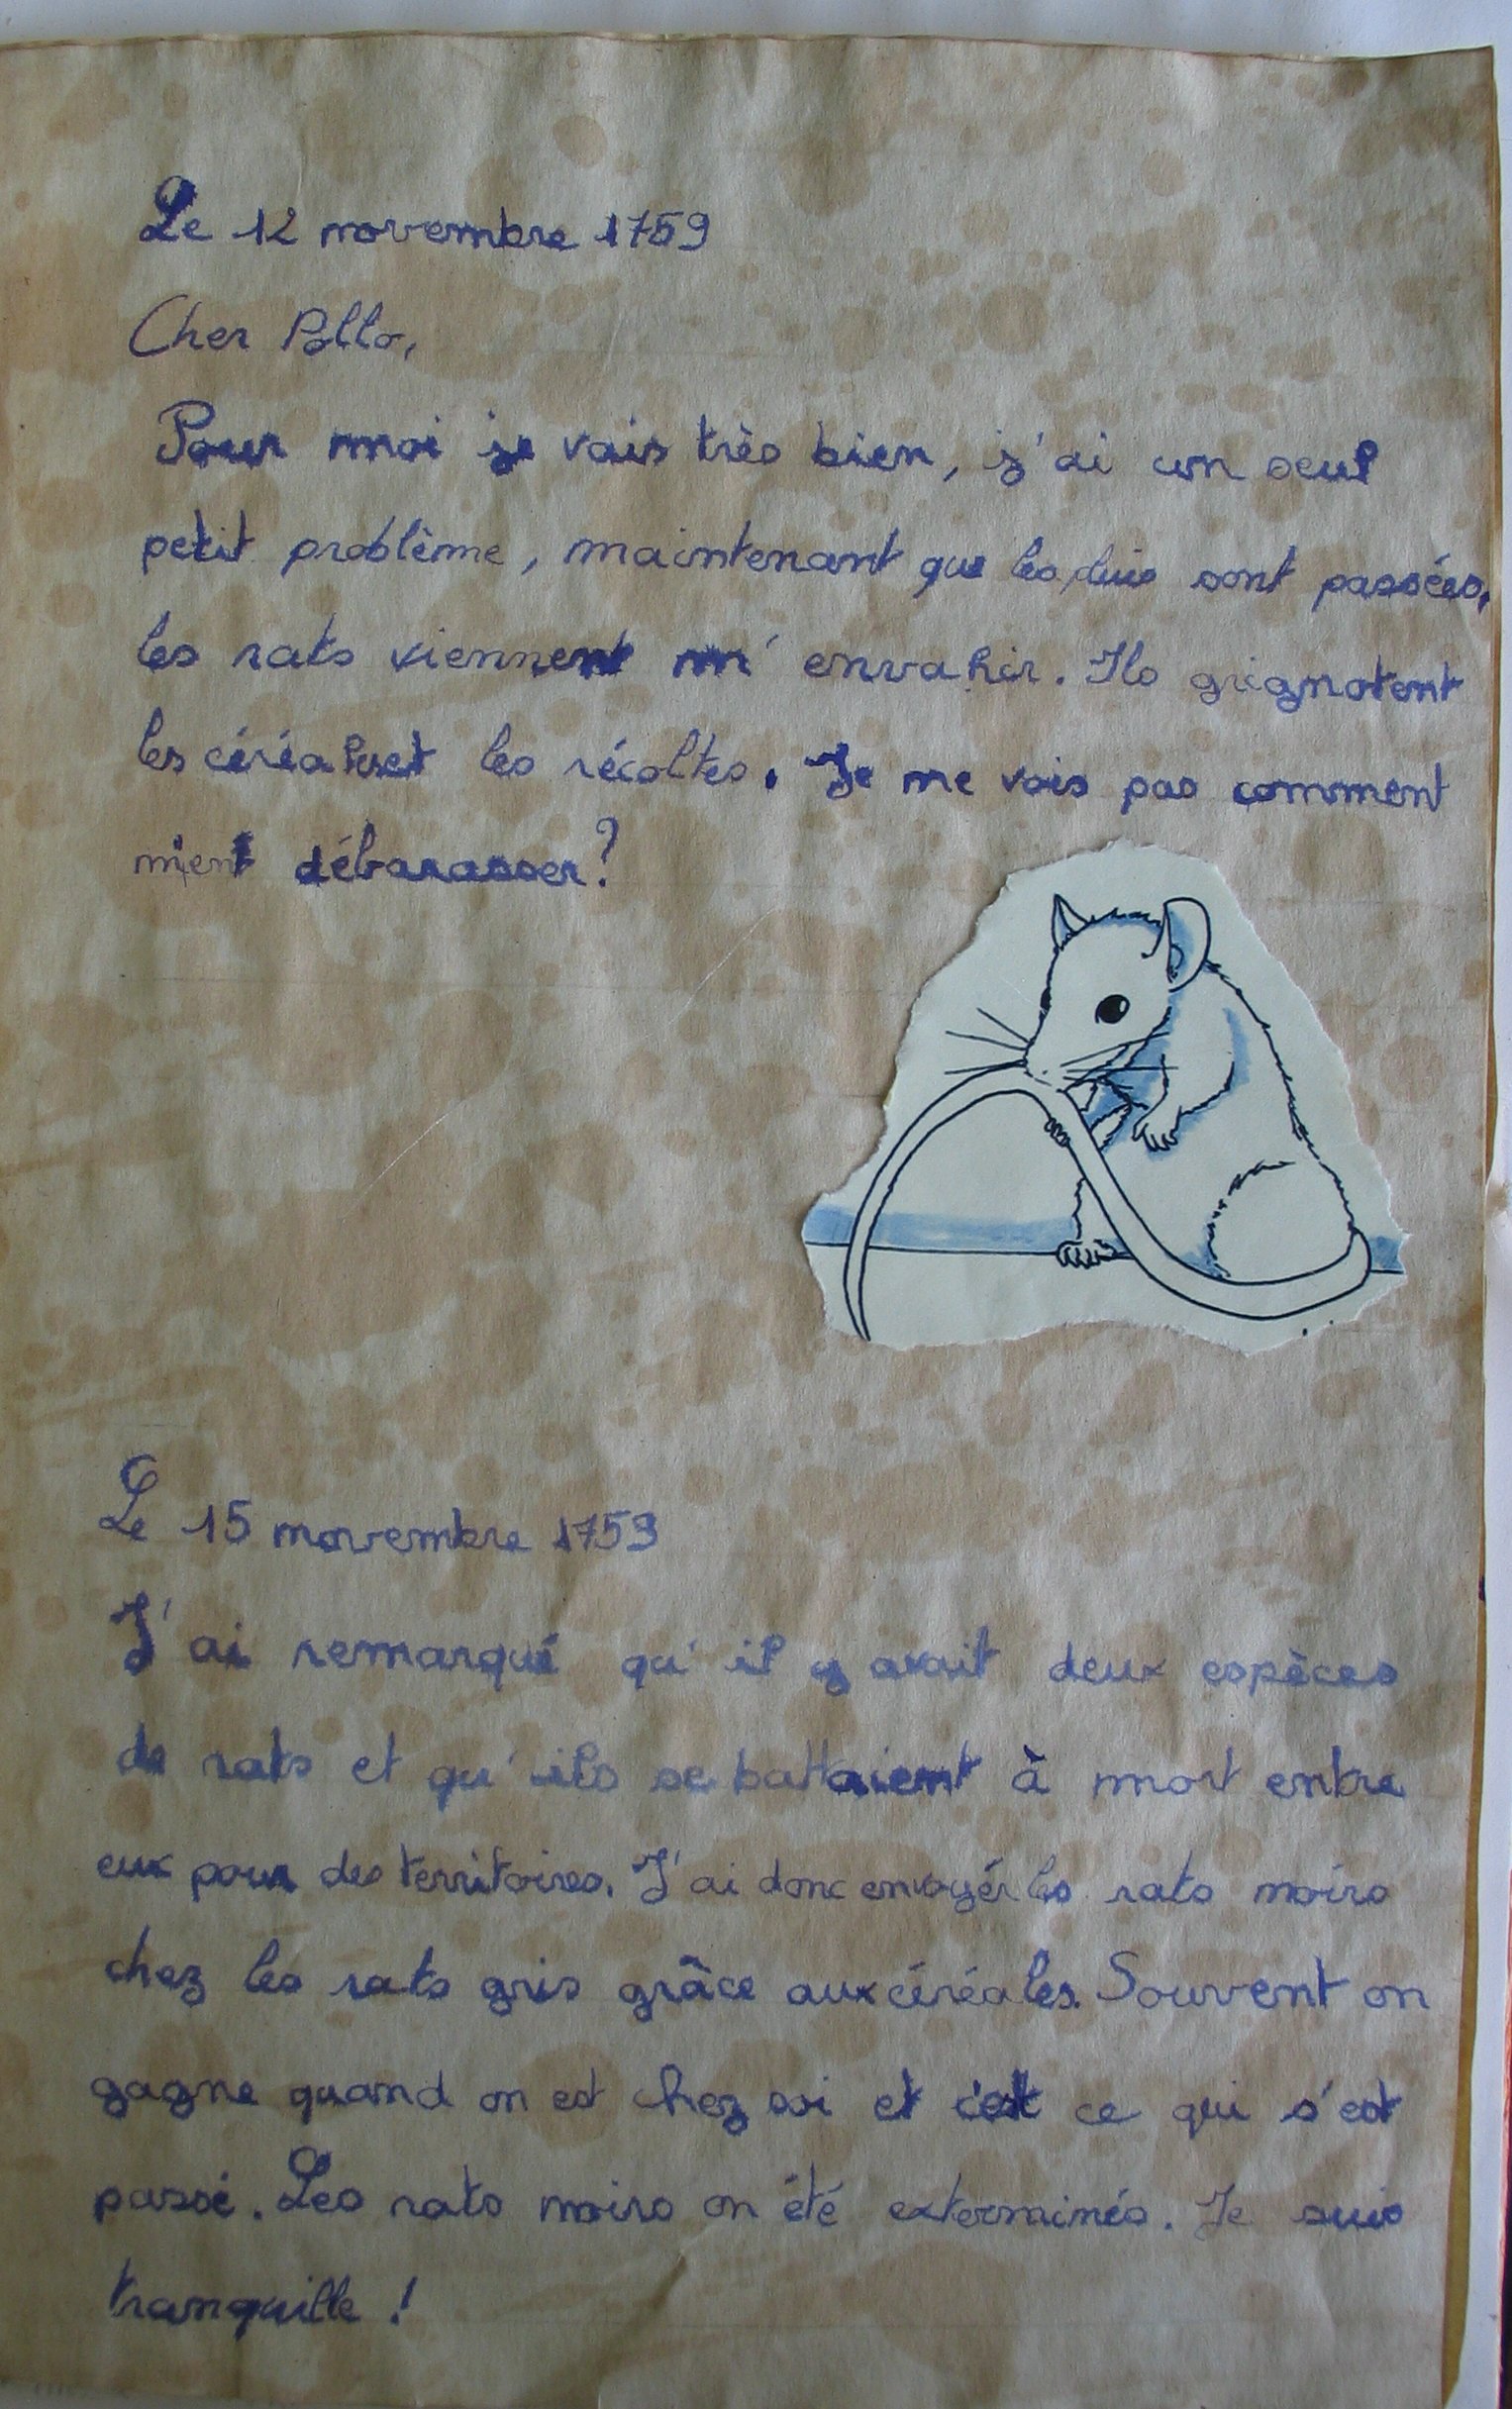 Le 12 novembre 1759
Cher Pollo,
Pour moi je vais très bien, j'ai un seul
petit problème, maintenant que les pluis sont passées,
les rats viennent m'envahir. Ils grignotent
les céréales et les récoltes. Je ne vois pas comment
m'ent débarasser?
Le 15 novembre 1759
J'ai remarqué qu'il y avait deux espèces
de rats et qu'ils se battaient à mort entre
eux pour des territoires. J'ai donc envoyér les rats noirs
chez les rats gris grâce aux céréales. Souvent on
gagne quand on est chez soi et c'est ce qui s'est
passé. Les rats noirs on été exterminés. Je suis
tranquille !